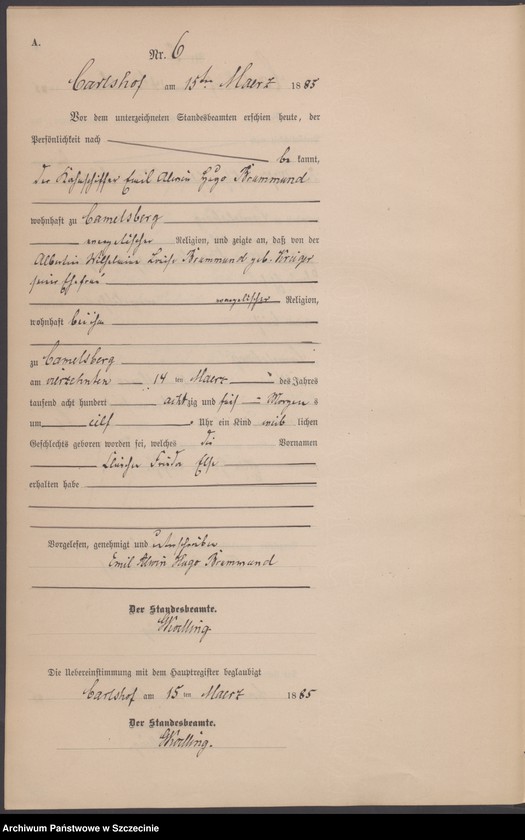 A.
Nr. 6
Carlshof am 15ten Maerz 1885
Vor dem unterzeichneten Standesbeamten erschien heute, der
Persönlichkeit nach
be kannt,
der Kahnschiffer Emil Alwin Hugo Brummund
wohnhaft zu Camelsberg
evangelischer Religion, und zeigte an, daß von der
Albertine Wilhelmine Louise Brummund geb. Krüger
seiner Ehefrau
evangelischer Religion,
wohnhaft bei ihm
zu Camelsberg
am vierzehnten 14 ten Maerz des Jahres
tausend acht hundert achtzig und fünf Morgens
um eilf Uhr ein Kind weib lichen
Geschlechts geboren worden sei, welches die Vornamen
Frieda Else
erhalten habe
Vorgelesen, genehmigt und unterschrieben
Emil Alwin Hugo Brummund
Der Standesbeamte.
Die Uebereinstimmung mit dem Hauptregister beglaubigt
Carlshof am 15 ten Maerz 1885
Der Standesbeamte.
Archiwum Państwowe w Szczecinie